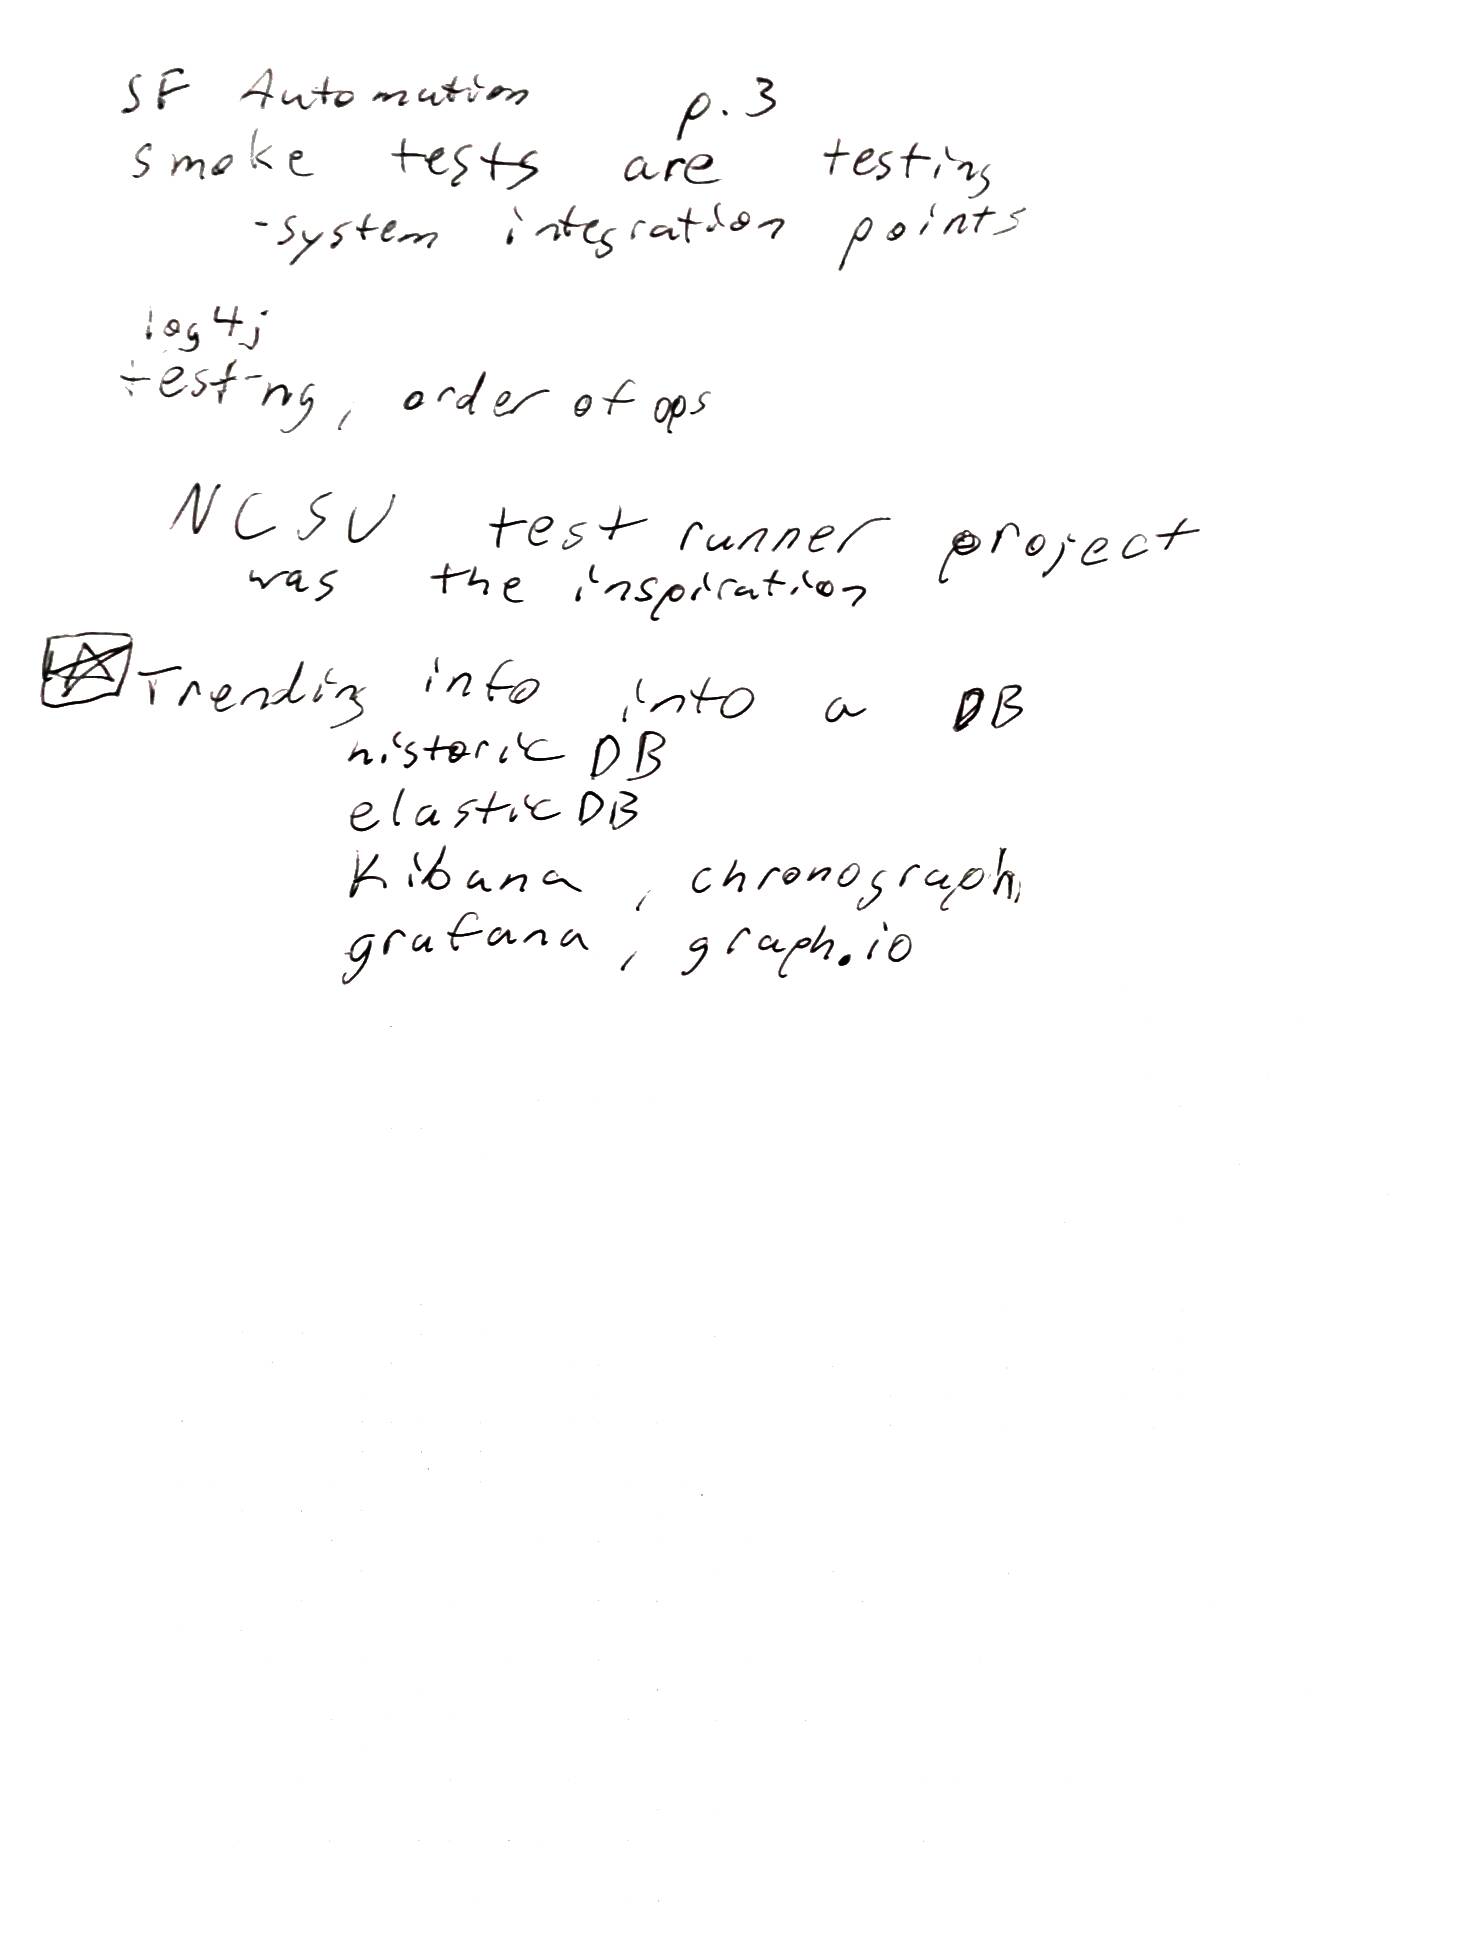 SF Automation p.3
smoke tests are testing
-system integration points
log4j
test-ng, order of ops
NCSU test runner project
was the inspiration
Trending info into a DB
historic DB
elastic DB
Kibana, chronograph,
grafana, graph.io